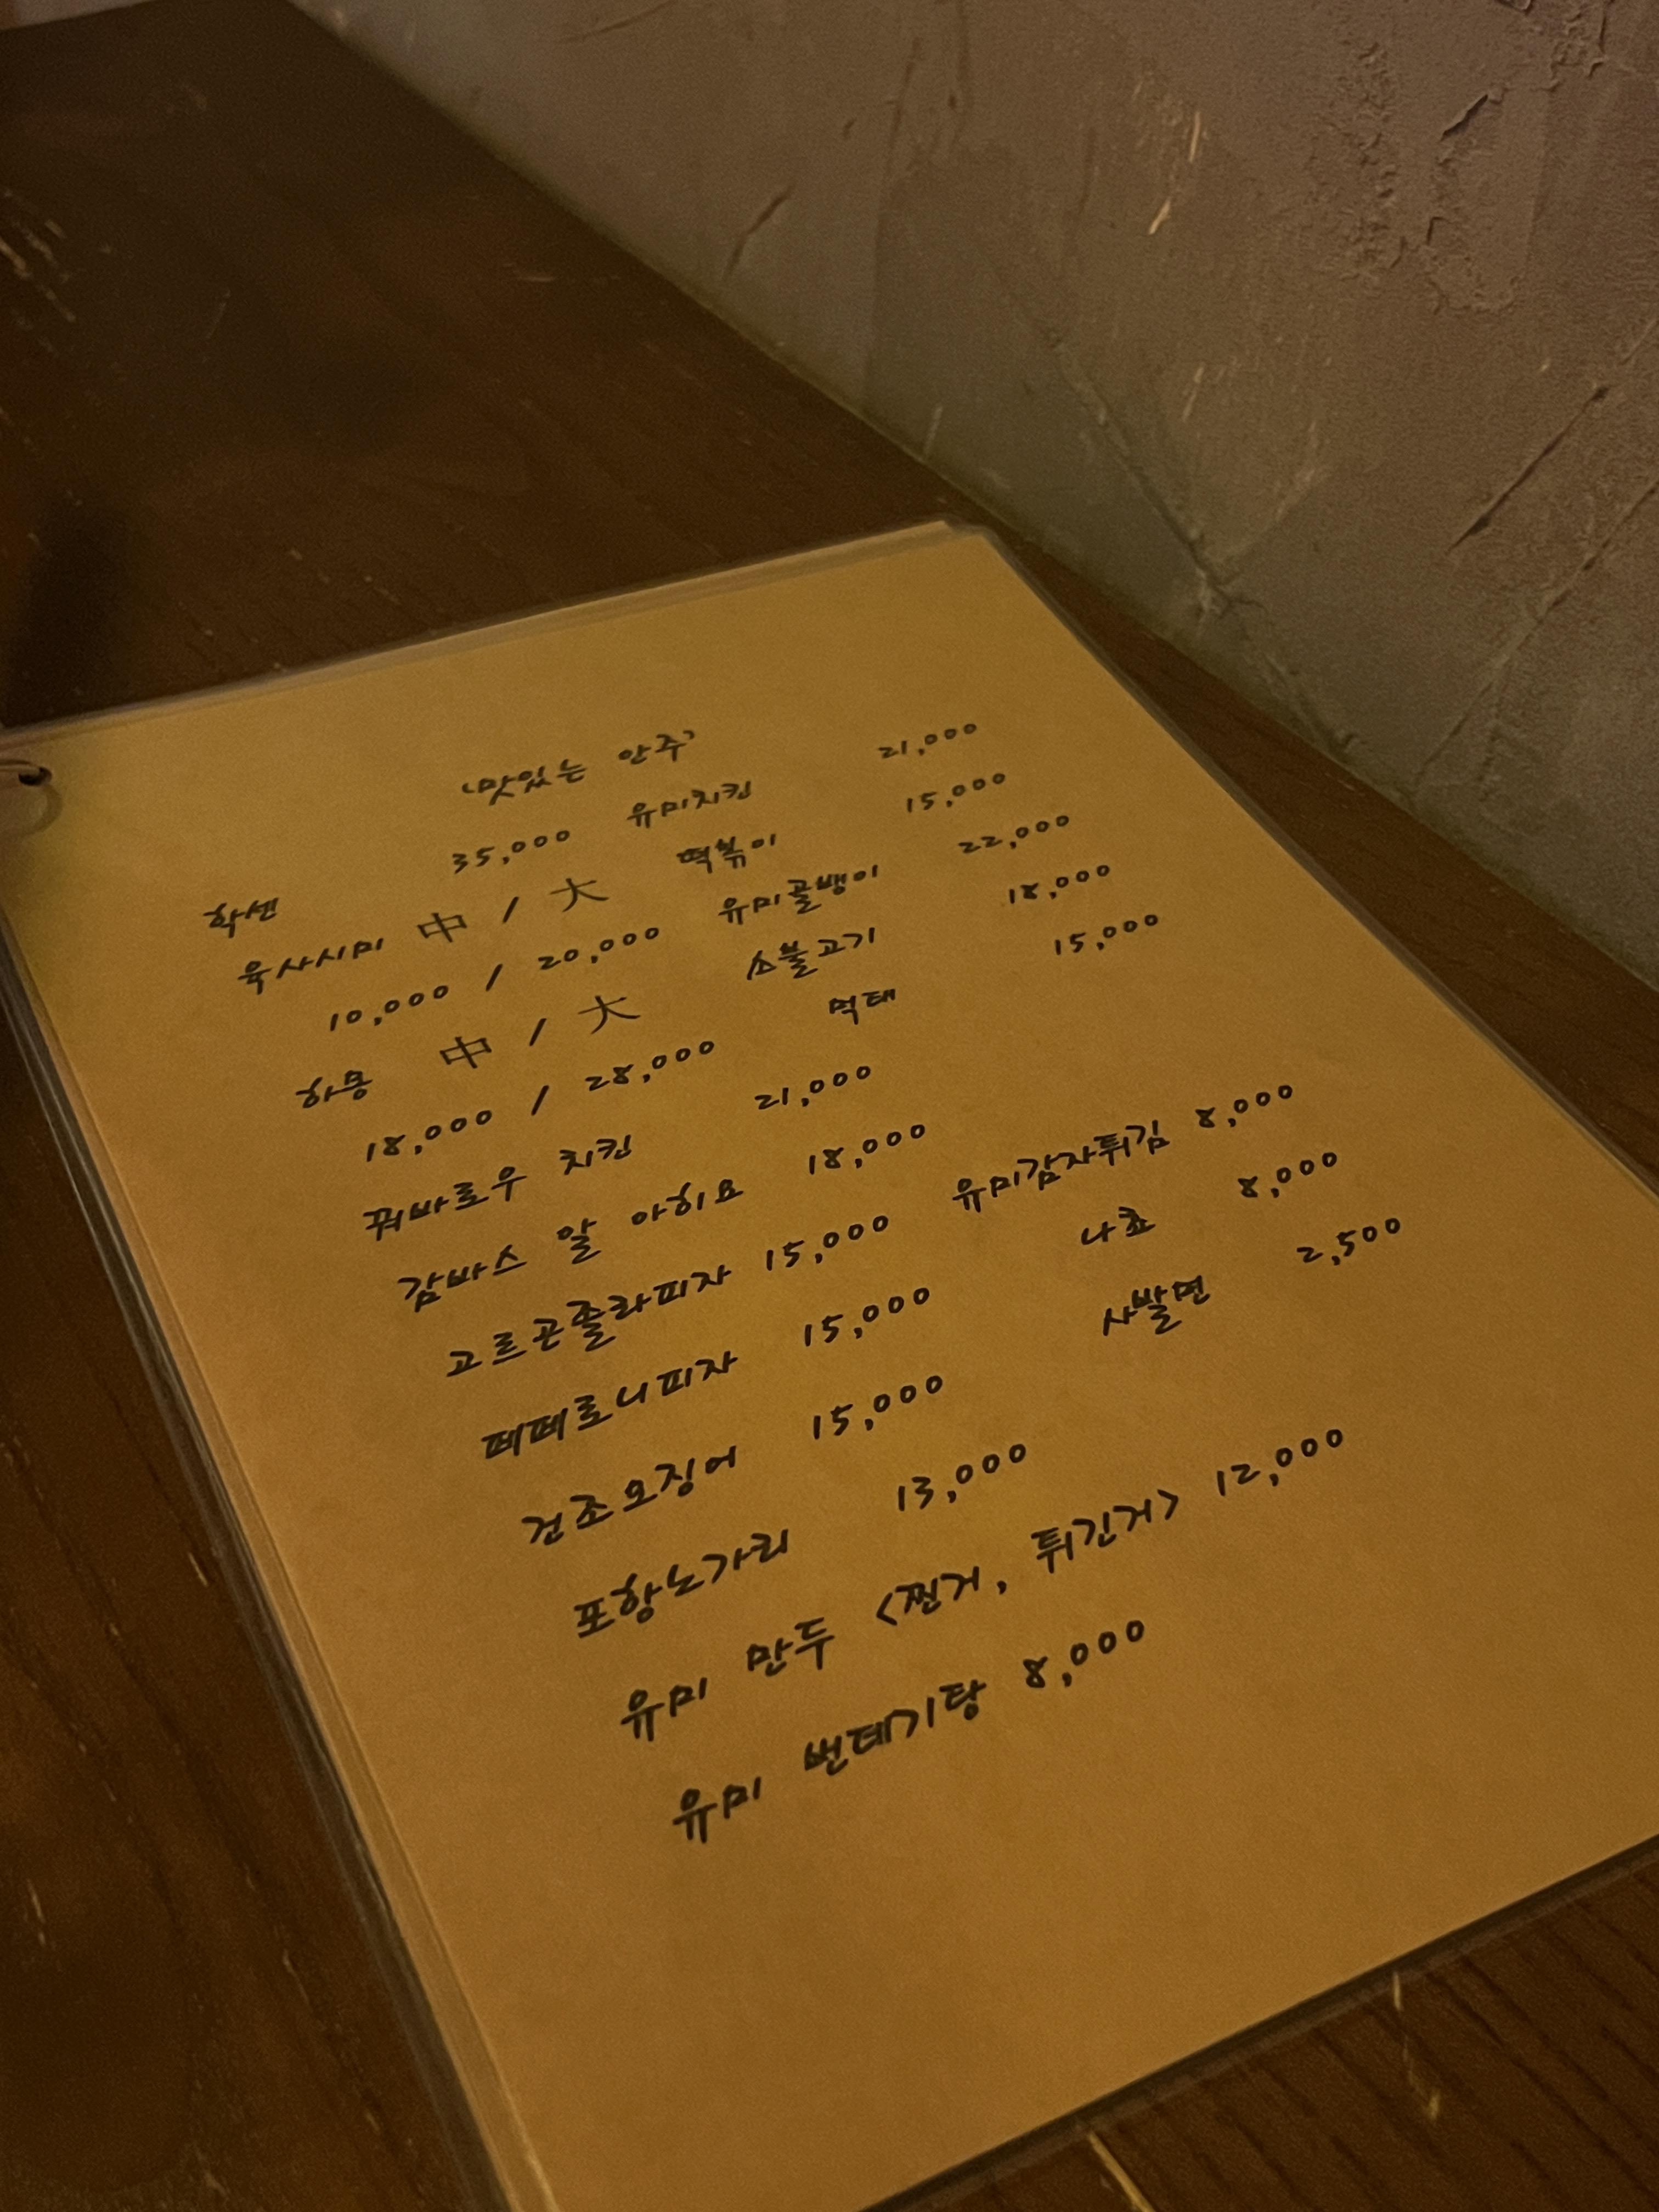 '맛있는 안주'
학센 35,000 유미치킨 21,000
육사시미 中 / 大 떡볶이 15,000
10,000 / 20,000 유미골뱅이 22,000
하몽 中 / 大 소불고기 18,000
18,000 / 28,000 먹태 15,000
꿔바로우 치킨 21,000
감바스 알 아히요 18,000 유미감자튀김 8,000
고르곤졸라피자 15,000 나쵸 8,000
페페로니피자 15,000 사발면 2,500
건조오징어 15,000
포항노가리 13,000
유미 만두 <찐거, 튀긴거> 12,000
유미 번데기탕 8,000